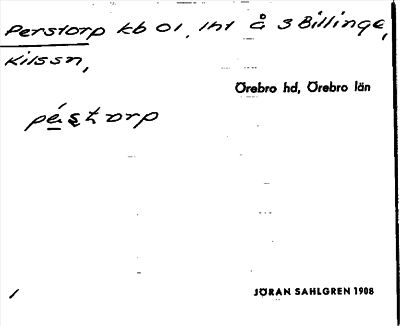 Perstorp kb 01, lht å 3 Billinge,
Kilssn,
Örebro hd, Örebro län
pástorp
1
JÖRAN SAHLGREN 1908